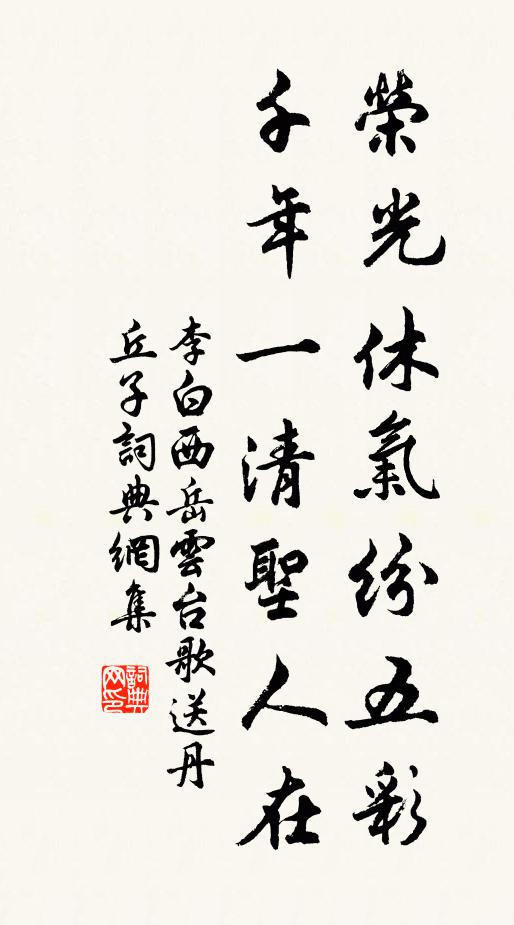 榮光休氣紛五彩
千年一清聖人在
李白西岳雲台歌送丹
丘子詞典網集
詞典
网印